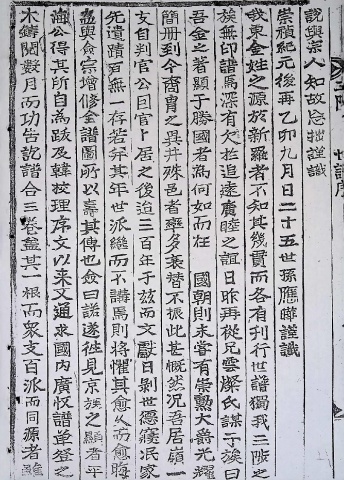 說與宗人知故忘拙謹識
崇禎紀元後再乙卯九月日二十五世孫應暐謹識
我東金姓之源於新羅者不知其幾貫而各有刊行世譜獨我三陟之
族無印譜焉深有欠於追遠廣睦之誼日昨再從兄雲燦氏謀于族曰
吾金之著顯于勝國者爲何如而在 國朝則未嘗有崇勲大爵光耀
簡冊到今裔冑之異井殊邑者率多衰替不振此甚慨然況吾居嶺一
支自判官公因官卜居之後迨三百年于玆而文獻日剝世德寢泯家
先遺蹟百無一存若弃其年世派継而不講焉則將懼其愈久而愈晦
盍與僉宗增修金譜圖所以壽其傳也僉曰諾遂徃見京族之顯者平
海公得其所自爲跋及韓校理序文以來又通求國內廣收譜單登之
木鋟閱數月而功告訖譜合三卷蓋其一根而衆支百派而同源者雖